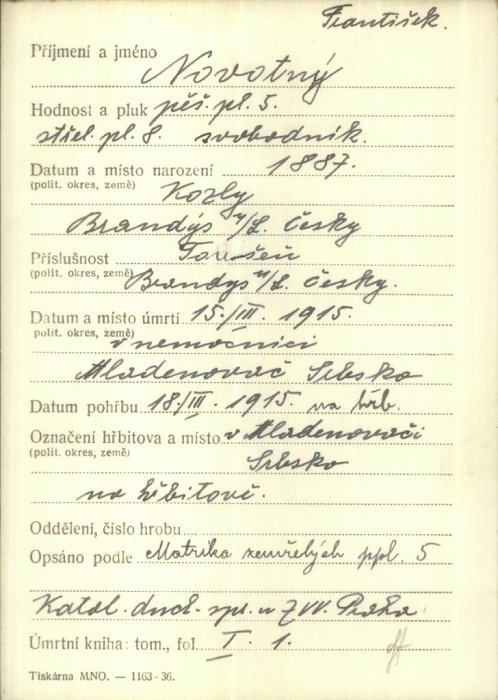 František.
Příjmení a jméno
Novotný
Hodnost a pluk pěš. pl. 5.
střel. pl. 8. svobodník.
Datum a místo narození 1887.
(polit. okres, země)
Kozly
Brandýs n/L. Česky
Příslušnost Toušeň
(polit. okres, země) Brandys n/L. Česky.
Datum a místo úmrtí 15./III. 1915.
polit. okres, země)
v nemocnici
Mladenovač Srbsko
Datum pohřbu 18./III. 1915. na hřb.
Označení hřbitova a místo v Mladenovači
(polit. okres, země)
Srbsko
na hřbitově.
Oddělení, číslo hrobu
Opsáno podle Matrika zemřelých ppl. 5
Katol. duch. spr. u ZVV. Praha
Úmrtní kniha: tom., fol. I. 1.
Tiskárna MNO. — 1163-36.